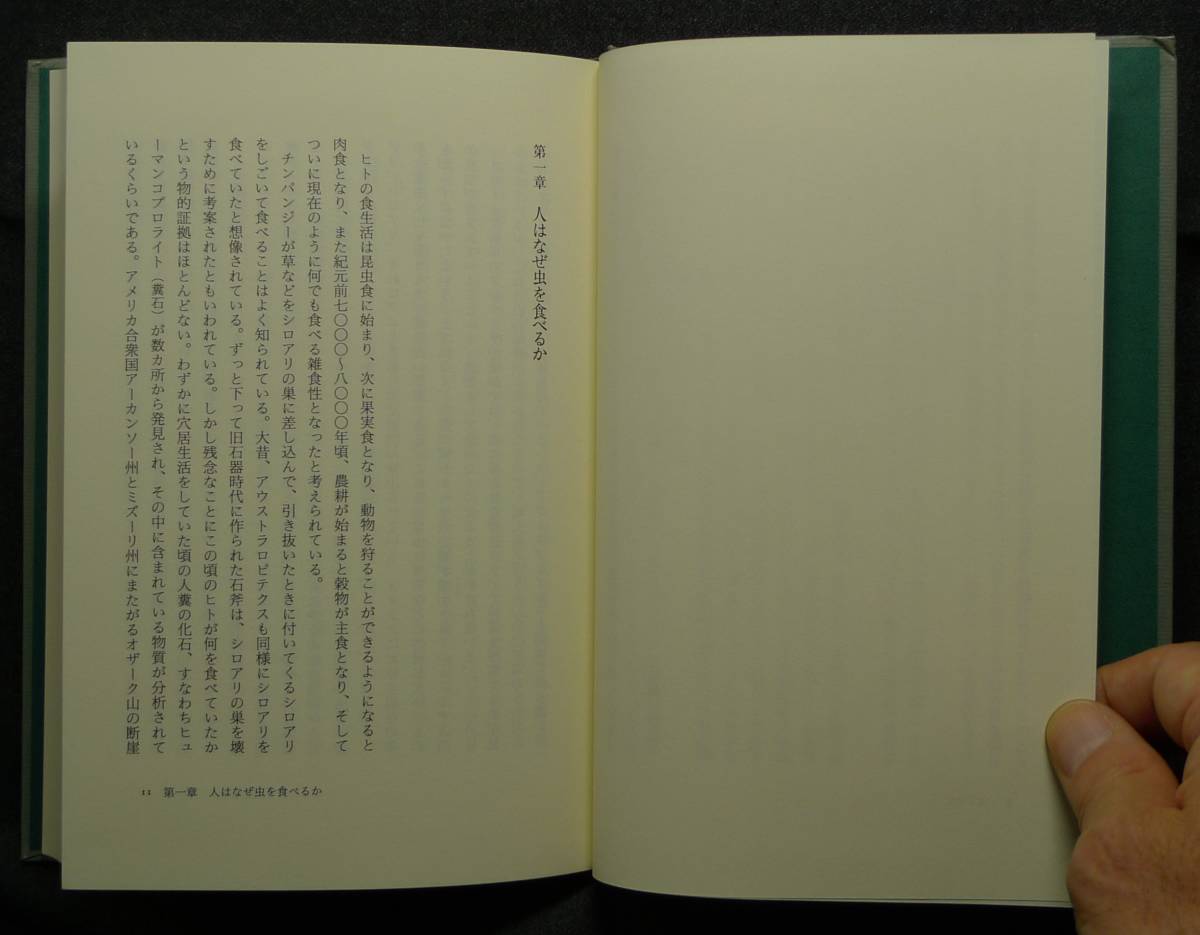 第一章　人はなぜ虫を食べるか
ヒトの食生活は昆虫食に始まり、次に果実食となり、動物を狩ることができるようになると
肉食となり、また紀元前七〇〇〇〜八〇〇〇年頃、農耕が始まると穀物が主食となり、そして
ついに現在のように何でも食べる雑食性となったと考えられている。
チンパンジーが草などをシロアリの巣に差し込んで、引き抜いたときに付いてくるシロアリ
をしごいて食べることはよく知られている。大昔、アウストラロピテクスも同様にシロアリを
食べていたと想像されている。ずっと下って旧石器時代に作られた石斧は、シロアリの巣を壊
すために考案されたともいわれている。しかし残念なことにこの頃のヒトが何を食べていたか
という物的証拠はほとんどない。わずかに穴居生活をしていた頃の人糞の化石、すなわちヒュ
ーマンコプロライト（糞石）が数カ所から発見され、その中に含まれている物質が分析されて
いるくらいである。アメリカ合衆国アーカンソー州とミズーリ州にまたがるオザーク山の断崖
11　第一章　人はなぜ虫を食べるか